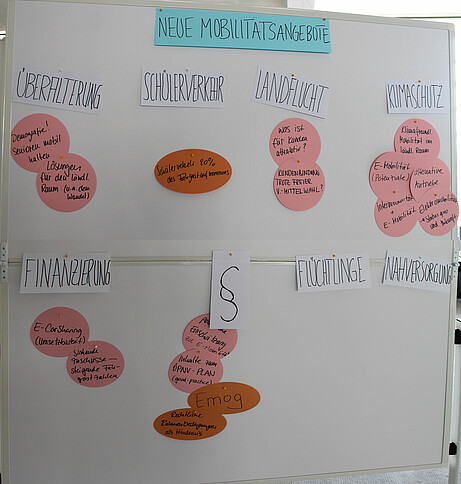 NEUE MOBILITÄTSANGEBOTE
ÜBERALTERUNG
SCHÜLERVERKEHR
LANDFLUCHT
KLIMASCHUTZ
Demografie!
Senioren mobil
halten
Lösungen
für den ländl.
Raum
Schülerverkehr 80%
des Fahrgastaufkommens
Was ist
für Kunden
attraktiv?
KUNDENBINDUNG
TROTZ FREIER
V.-MITTELWAHL?
Klimafreundl.
Mobilität im
ländl. Raum
E-Mobilität
(Potentiale)
Alternative
Antriebe
Intermodalität
E-Mobilität
FINANZIERUNG
§
FLÜCHTLINGE
NAHVERSORGUNG
E-CarSharing
(Umsetzbarkeit)
Sinkende
Zuschüsse –
steigende Fahr-
gastzahlen
Inhalte zum
ÖPNV-PLAN
(good-practice)
Emog
Rechtliche
Rahmenbedingungen
als Hindernis